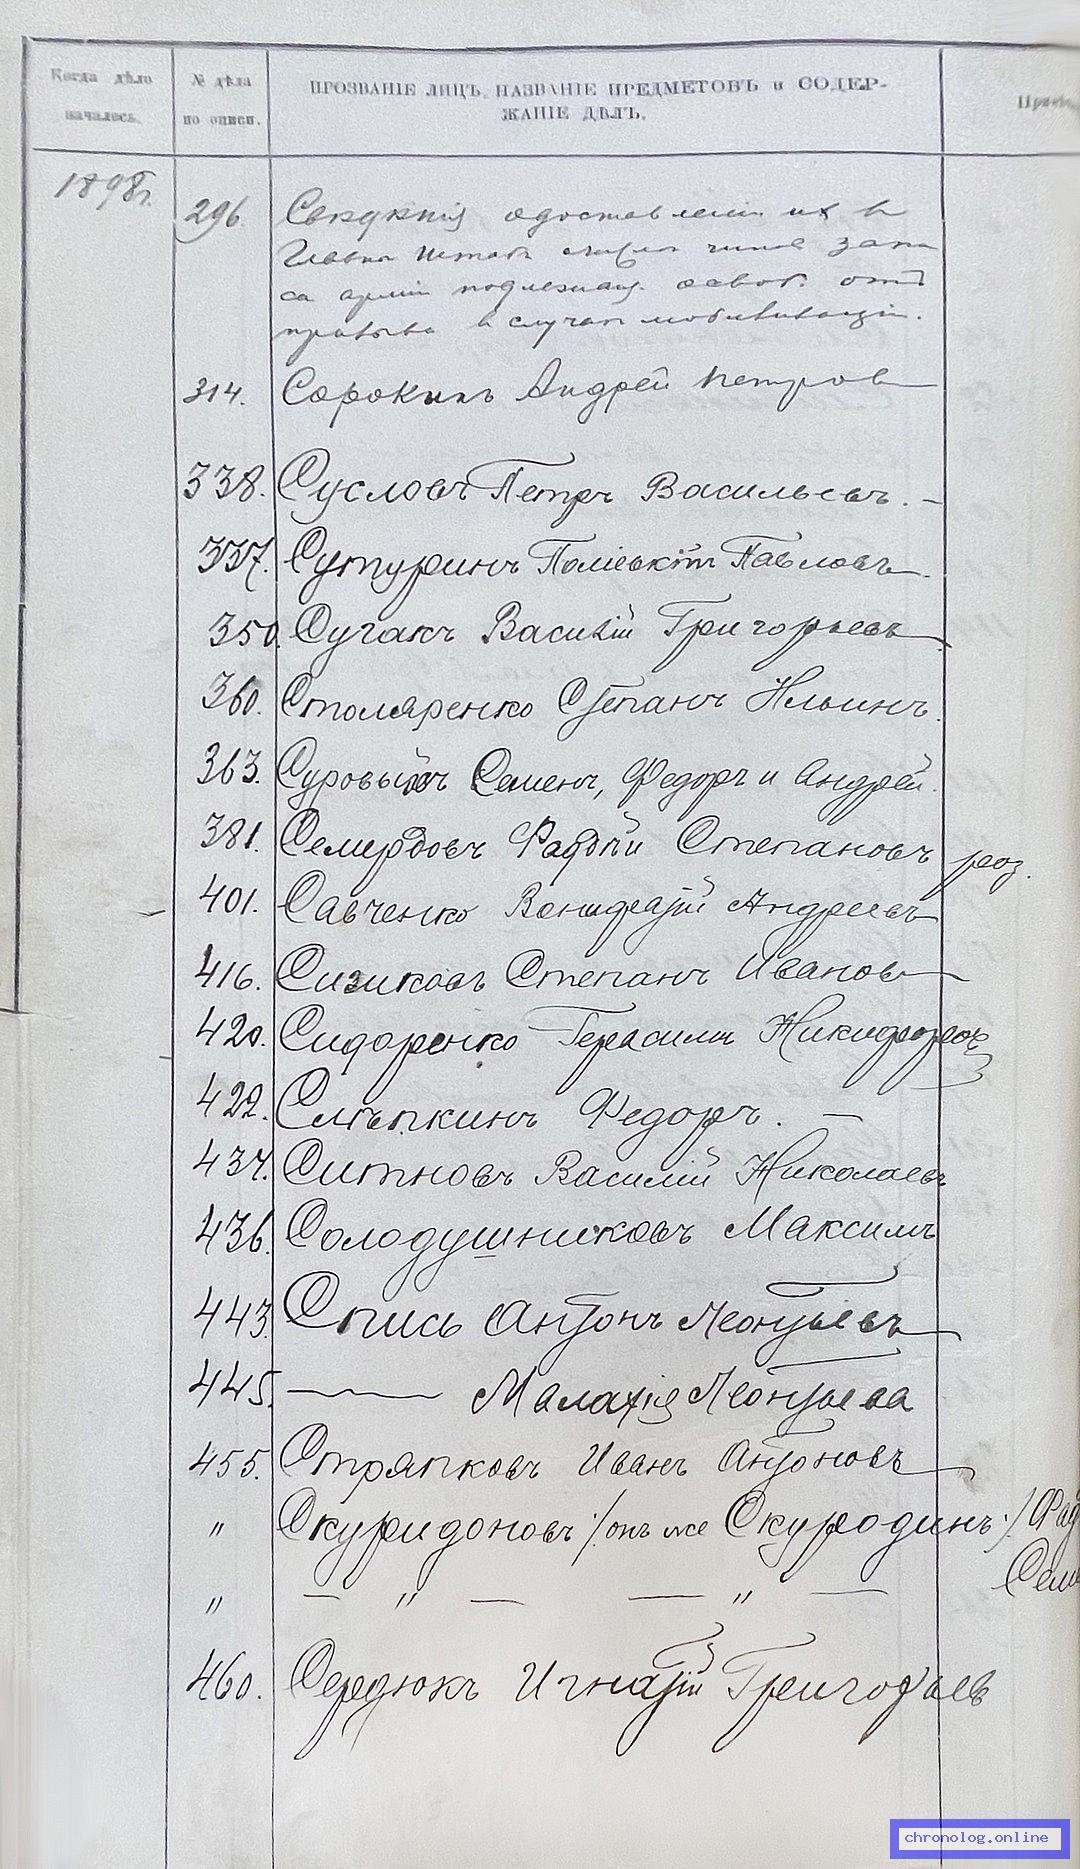 Когда дѣло
началось.
№ дѣла
по описи.
ПРОЗВАНІЕ ЛИЦЪ, НАЗВАНІЕ ПРЕДМЕТОВЪ и СОДЕР-
ЖАНІЕ ДѢЛЪ.
1898 г.
296. Свѣдѣнія о доставленіи ихъ въ
Главн Штабъ о числѣ чиновъ запа
са арміи подлежащ. освоб. отъ
призыва въ случаѣ мобилизаціи.
314. Сорокинъ Андрей Петров
338. Сусловъ Петръ Васильевъ. –
337. Сутуринъ Поліевктъ Павловъ.
350. Сугакъ Василій Григорьевъ
360. Столяренко Степанъ Ильинъ.
363. Суровый Семенъ, Федоръ и Андрей.
381. Степановъ
401. Савченко Андреевъ
416. Сизиковъ Степанъ Иванов
420. Сидоренко Герасимъ Никифоровъ
422. Слѣпкинъ Федоръ. –
437. Ситновъ Василій Николаевъ
436. Солодушниковъ Максимъ
443. Спись Антонъ Леонтьевъ
445. — Малахія Леонтьева
455. Стряпковъ Иванъ Антоновъ
" Скуридоновъ /онъ же Скуродинъ/
" — " — — " —
460. Середюкъ Игнатій Григорьев
chronolog.online